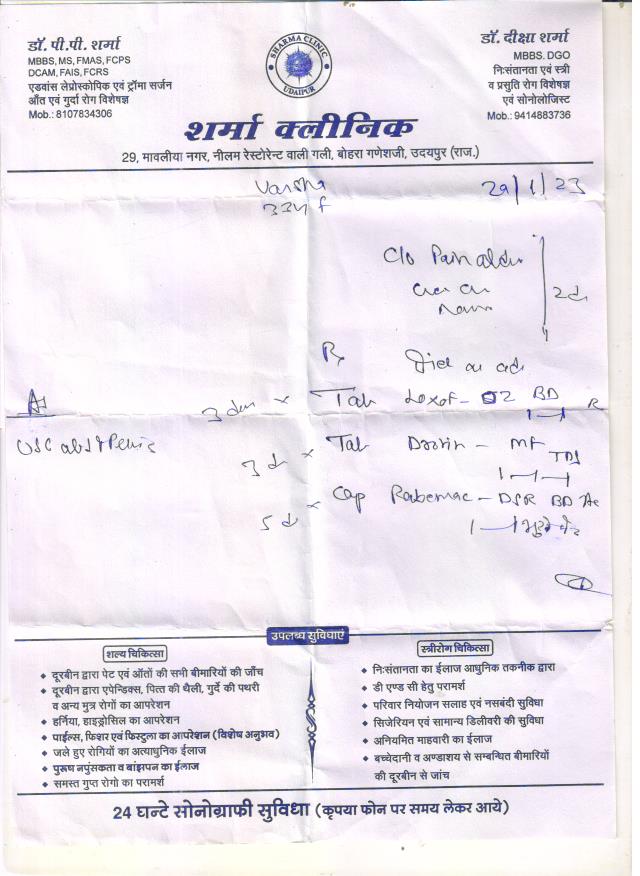 डॉ. पी.पी. शर्मा
MBBS, MS, FMAS, FCPS
DCAM, FAIS, FCRS
एडवांस लेप्रोस्कोपिक एवं ट्रॉमा सर्जन
आँत एवं गुर्दा रोग विशेषज्ञ
Mob.: 8107834306
SHARMA CLINIC
UDAIPUR
डॉ. दीक्षा शर्मा
MBBS. DGO
निःसंतानता एवं स्त्री
व प्रसुति रोग विशेषज्ञ
एवं सोनोलोजिस्ट
Mob.: 9414883736
शर्मा क्लीनिक
29, मावलीया नगर, नीलम रेस्टोरेन्ट वाली गली, बोहरा गणेशजी, उदयपुर (राज.)
Varsha 29/1/23
33y f
C/o Pain
2d
Rx
3 × Tab - OZ BD
Tab - MF TDS
3 d ×
Cap Rabemac - DSR BD Ac
5 d ×
उपलब्ध सुविधाएं
शल्य चिकित्सा
दूरबीन द्वारा पेट एवं ऑतों की सभी बीमारियों की जाँच
दूरबीन द्वारा एपेन्डिक्स, पित्त की थैली, गुर्दे की पथरी
व अन्य मुत्र रोगों का आपरेशन
हर्निया, हाइड्रोसिल का आपरेशन
पाईल्स, फिशर एवं फिस्टुला का आपरेशन (विशेष अनुभव)
जले हुए रोगियों का अत्याधुनिक ईलाज
पुरूष नपुंसकता व बांझपन का ईलाज
समस्त गुप्त रोगो का परामर्श
स्त्रीरोग चिकित्सा
निःसंतानता का ईलाज आधुनिक तकनीक द्वारा
डी एण्ड सी हेतु परामर्श
परिवार नियोजन सलाह एवं नसबंदी सुविधा
सिजेरियन एवं सामान्य डिलीवरी की सुविधा
अनियमित माहवारी का ईलाज
बच्चेदानी व अण्डाशय से सम्बन्धित बीमारियों
की दूरबीन से जांच
24 घन्टे सोनोग्राफी सुविधा (कृपया फोन पर समय लेकर आये)